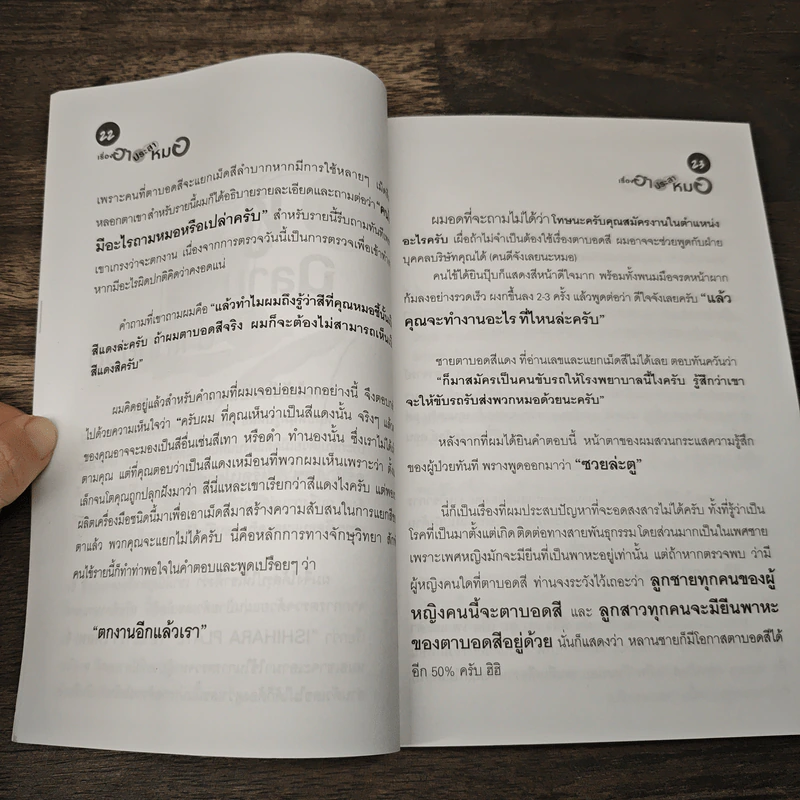 22
เรื่อง ฮา ประสา หมอ
เพราะคนที่ตาบอดสีจะแยกเม็ดสีลำบากหากมีการใช้หลายๆ
หลอกตาเขาสำหรับรายนี้ผมก็ได้อธิบายรายละเอียดและถามต่อว่า
มีอะไรถามหมอหรือเปล่าครับ" สำหรับรายนี้รีบถามทันที
เขาเกรงว่าจะตกงาน เนื่องจากการตรวจวันนี้เป็นการตรวจเพื่อเข้าทำ
หากมีอะไรผิดปกติคิดว่าคงอดแน่
คำถามที่เขาถามผมคือ "แล้วทำไมผมถึงรู้ว่าสีที่คุณหมอชี้นั้น
สีแดงล่ะครับ ถ้าผมตาบอดสีจริง ผมก็จะต้องไม่สามารถเห็น
สีแดงสิครับ"
ผมคิดอยู่แล้วสำหรับคำถามที่ผมเจอบ่อยมากอย่างนี้ จึงตอบ
ไปด้วยความเห็นใจว่า "ครับผม ที่คุณเห็นว่าเป็นสีแดงนั้น จริงๆ แล้ว
ของคุณอาจจะมองเป็นสีอื่นเช่นสีเทา หรือดำ ทำนองนั้น ซึ่งเราไม่ได้
ตามคุณ แต่ที่คุณตอบว่าเป็นสีแดงเหมือนที่พวกผมเห็นเพราะว่า
เล็กจนโตคุณถูกปลูกฝังมาว่า สีนี่แหละเขาเรียกว่าสีแดงไงครับ แต่พอ
ผลิตเครื่องมือชนิดนี้มาเพื่อเอาเม็ดสีมาสร้างความสับสนในการแยกสี
ตาแล้ว พวกคุณจะแยกไม่ได้ครับ นี่คือหลักการทางจักษุวิทยา
คนไข้รายนี้ก็ทำท่าพอใจในคำตอบและพูดเปรือยๆ ว่า
"ตกงานอีกแล้วเรา"
23
เรื่อง ฮา ประสา หมอ
ผมอดที่จะถามไม่ได้ว่า โทษนะครับคุณสมัครงานในตำแหน่ง
อะไรครับ เผื่อถ้าไม่จำเป็นต้องใช้เรื่องตาบอดสี ผมอาจจะช่วยพูดกับฝ่าย
บุคคลบริษัทคุณได้ (คนดีจังเลยนะหมอ)
คนไข้ได้ยินปุ๊บก็แสดงสีหน้าดีใจมาก พร้อมทั้งพนมมือจรดหน้าผาก
ก้มลงอย่างรวดเร็ว ผงกขึ้นลง 2-3 ครั้ง แล้วพูดต่อว่า ดีใจจังเลยครับ "แล้ว
คุณจะทำงานอะไร ที่ไหนล่ะครับ"
ชายตาบอดสีแดง ที่อ่านเลขและแยกเม็ดสีไม่ได้เลย ตอบทันควันว่า
"ก็มาสมัครเป็นคนขับรถให้โรงพยาบาลนี้ไงครับ รู้สึกว่าเขา
จะให้ขับรถรับส่งพวกหมอด้วยนะครับ"
หลังจากที่ผมได้ยินคำตอบนี้ หน้าตาของผมสวนกระแสความรู้สึก
ของผู้ป่วยทันที พรางพูดออกมาว่า "ซวยล่ะตู"
นี่ก็เป็นเรื่องที่ผมประสบปัญหาที่จะอดสงสารไม่ได้ครับ ทั้งที่รู้ว่าเป็น
โรคที่เป็นมาตั้งแต่เกิด ติดต่อทางสายพันธุกรรม โดยส่วนมากเป็นในเพศชาย
เพราะเพศหญิงมักจะมียีนที่เป็นพาหะอยู่เท่านั้น แต่ถ้าหากตรวจพบ ว่ามี
ผู้หญิงคนใดที่ตาบอดสี ท่านจงระวังไว้เถอะว่า ลูกชายทุกคนของผู้
หญิงคนนี้จะตาบอดสี และ ลูกสาวทุกคนจะมียีนพาหะ
ของตาบอดสีอยู่ด้วย นั่นก็แสดงว่า หลานชายก็มีโอกาสตาบอดสีได้
อีก 50% ครับ ฮิฮิ